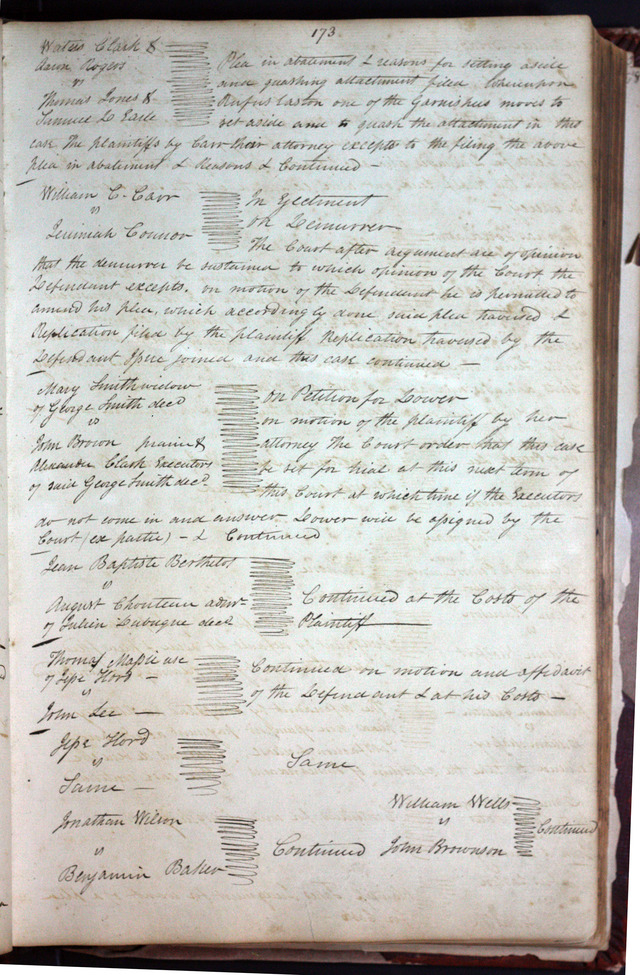 173
Waters Clark &
Aaron Rogers
vs
Thomas Jones &
Samuel D Earle
Plea in abatement & reasons for setting aside
and quashing attachment filed Whereupon
Rufus Easton one of the Garnishees moves to
set aside and to quash the attachment in this
case The plaintiffs by Carr their attorney excepts to the filing the above
plea in abatement & Reasons & Continued –
William C. Carr
vs
Jeremiah Connor
In Ejectment
on Demurrer
The Court after argument are of opinion
that the demurrer be sustained to which opinion of the Court the
Defendant excepts. on motion of the Defendant he is permitted to
amend his plea, which accordingly done said plea traversed &
Replication filed by the plaintiff Replication traversed by the
Defendant Issue joined and this case continued –
Mary Smith widow
of George Smith decd
vs
John Brown &
Alexander Clark Executors
of said George Smith decd
On Petition for Dower
on motion of the plaintiff by her
attorney The Court order that this case
be set for trial at this next term of
this Court at which time if the Executors
do not come in and answer Dower will be assigned by the
Court (ex partie) – & Continued
Jean Baptiste Berthelot
vs
August Chouteau admr
of Julien Dubuque decd
Continued at the Costs of the
Plaintiff
Thomas use
of Jesse Hord –
vs
John Lee –
Continued on motion and affidavit
of the Defendant & at his Costs –
Jesse Hord
vs
Same –
Same
Jonathan Wilson
vs
Benjamin Baker
Continued
William Wells
vs
John Brownson
Continued